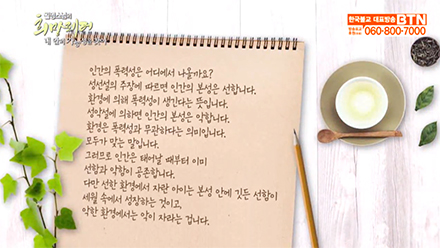 희망편지
한국불교 대표방송 BTN
060-800-7000
인간의 폭력성은 어디에서 나올까요?
성선설의 주장에 따르면 인간의 본성은 선합니다.
환경에 의해 폭력성이 생긴다는 뜻입니다.
성악설에 의하면 인간의 본성은 악합니다.
환경은 폭력성과 무관하다는 의미입니다.
모두가 맞는 말입니다.
그러므로 인간은 태어날 때부터 이미
선함과 악함이 공존합니다.
다만 선한 환경에서 자란 아이는 본성 안에 깃든 선함이
세월 속에서 성장하는 것이고,
악한 환경에서는 악이 자라는 겁니다.